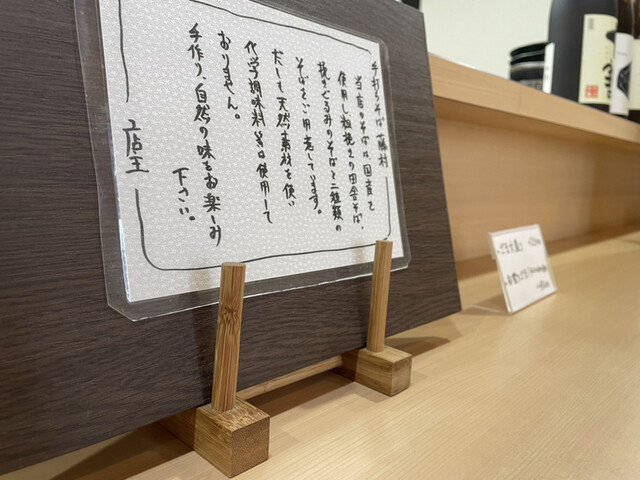 手打ちそば 藤村
当店のそばは、国産で
使用し粗挽きの田舎そば、
挽きぐるみのそばと二種類の
そばをご用意しています。
だしも天然素材を使い
化学調味料等は使用して
おりません。
手作り、自然の味をお楽しみ
下さい。
店主